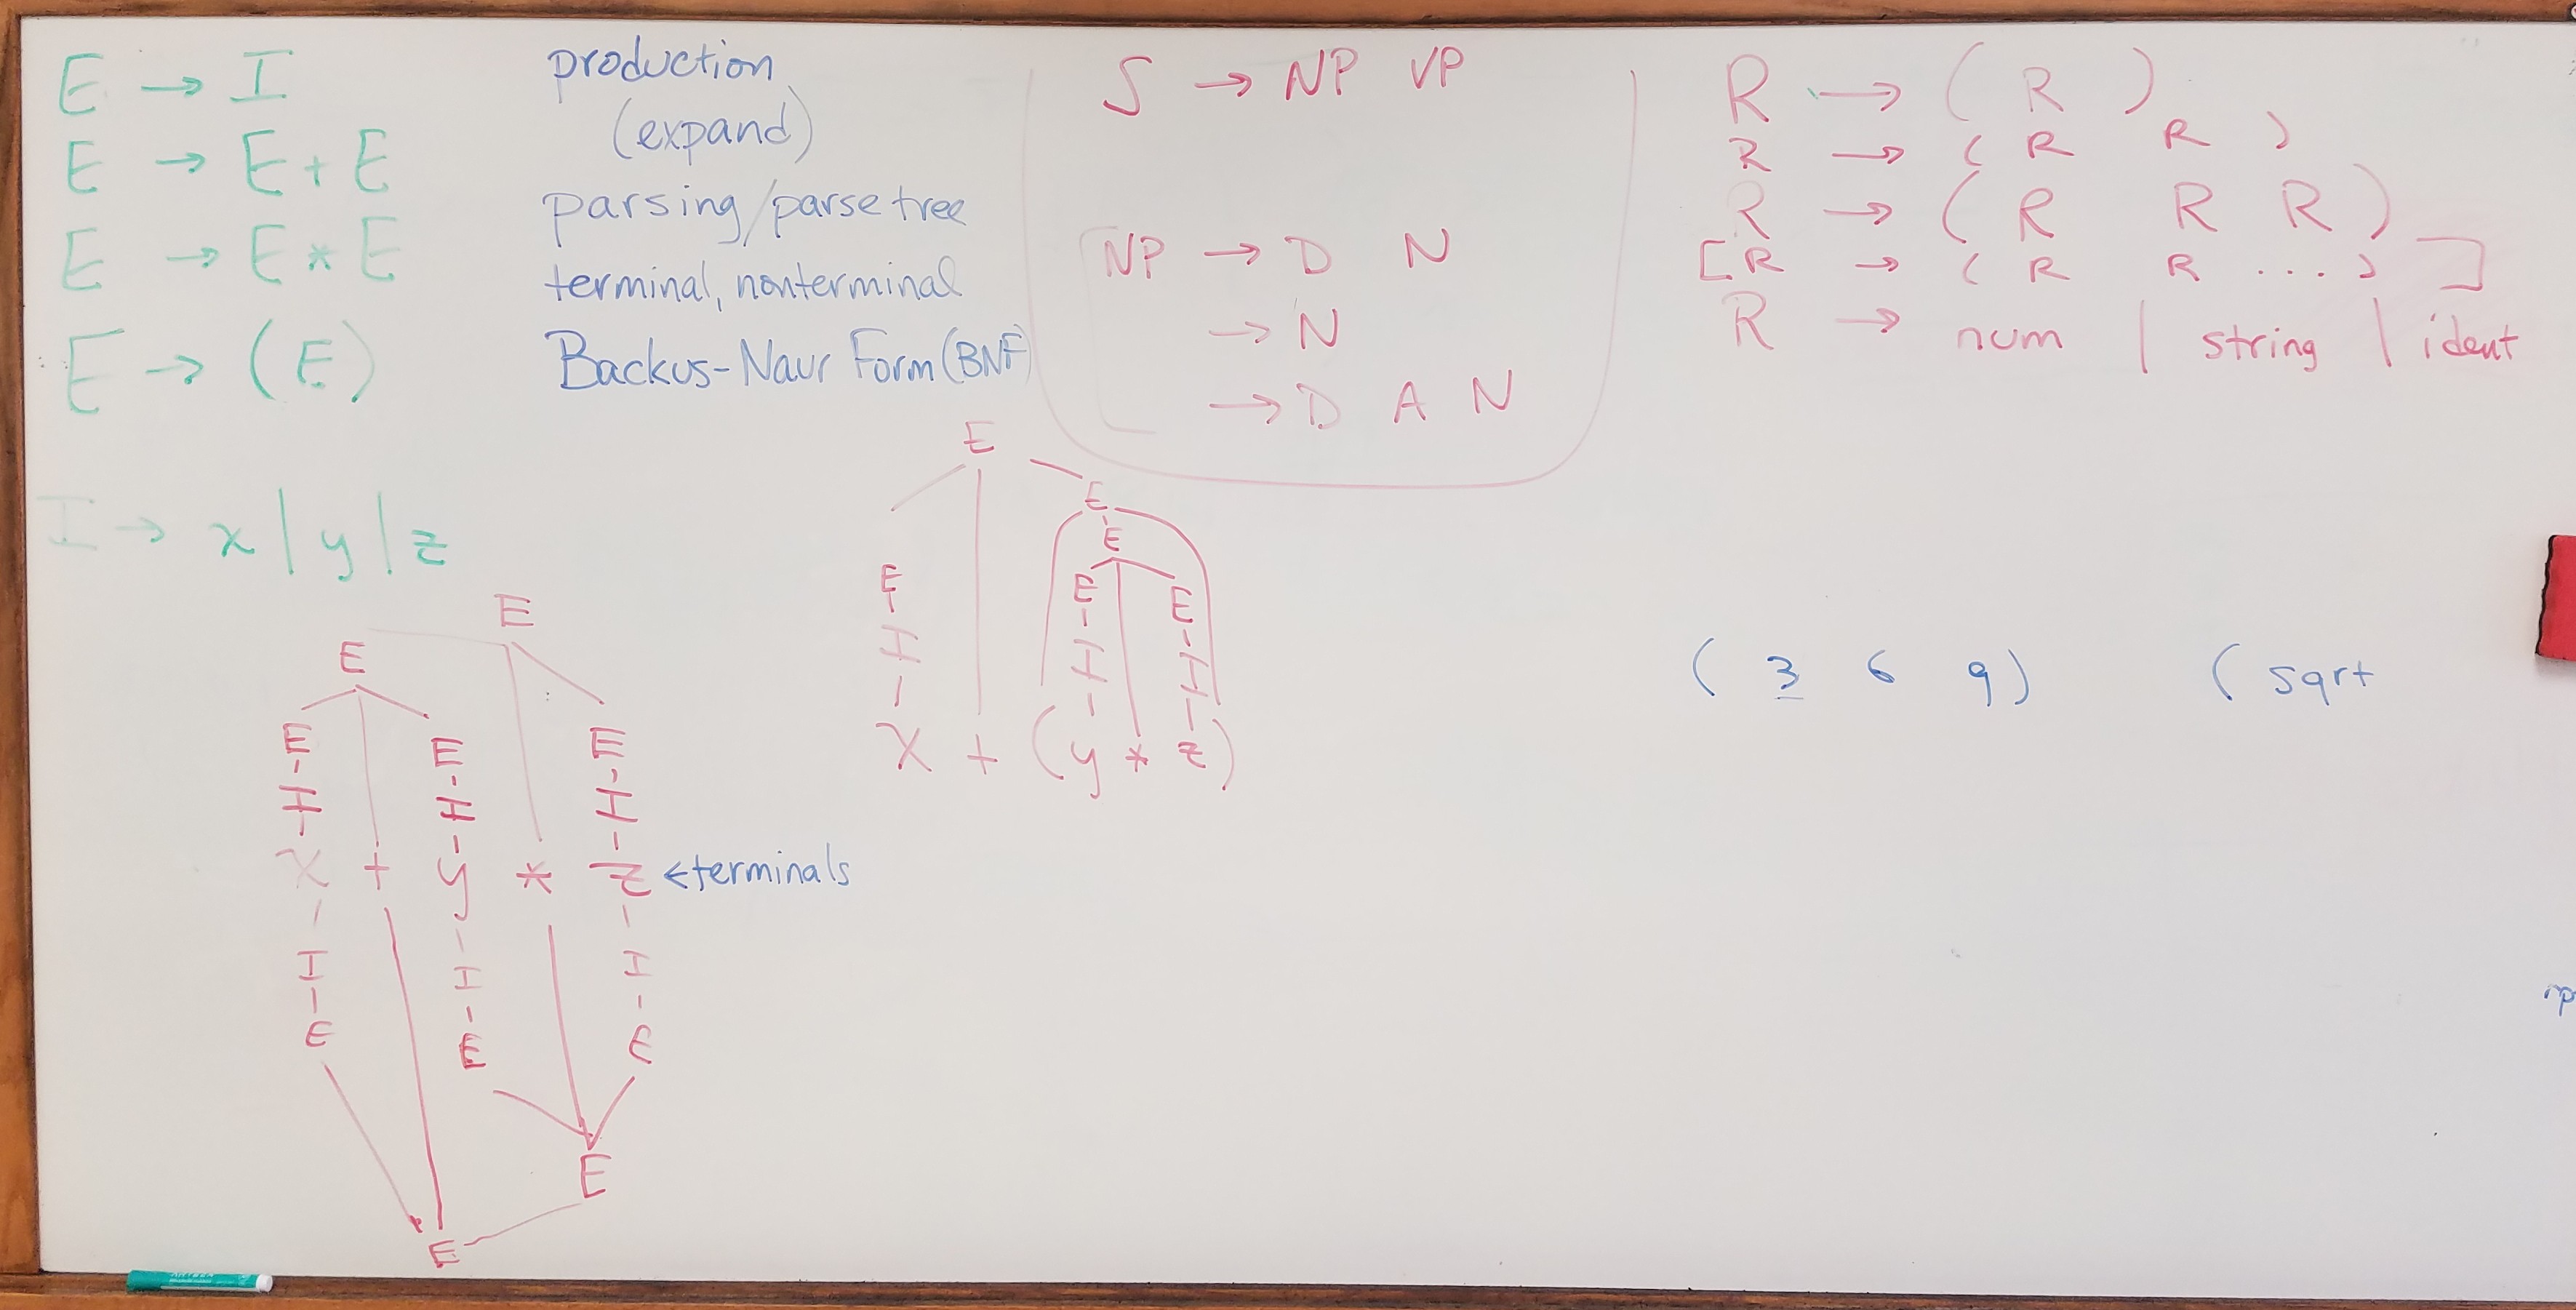 E → I
E → E + E
E → E * E
E → (E)
I → x | y | z
production
(expand)
parsing/parse tree
terminal, nonterminal
Backus-Naur Form (BNF)
S → NP VP
NP → D N
→ N
→ D A N
R → ( R )
R → ( R R )
R → ( R R R )
[ R → ( R R .... ) ]
R → num | string | ident
E
E
E E E
I I I
x + y * z ← terminals
I I I
E E E
E
E
E
E
E
E E E
I I I
x + ( y * z )
( 3 6 9 ) ( sqrt